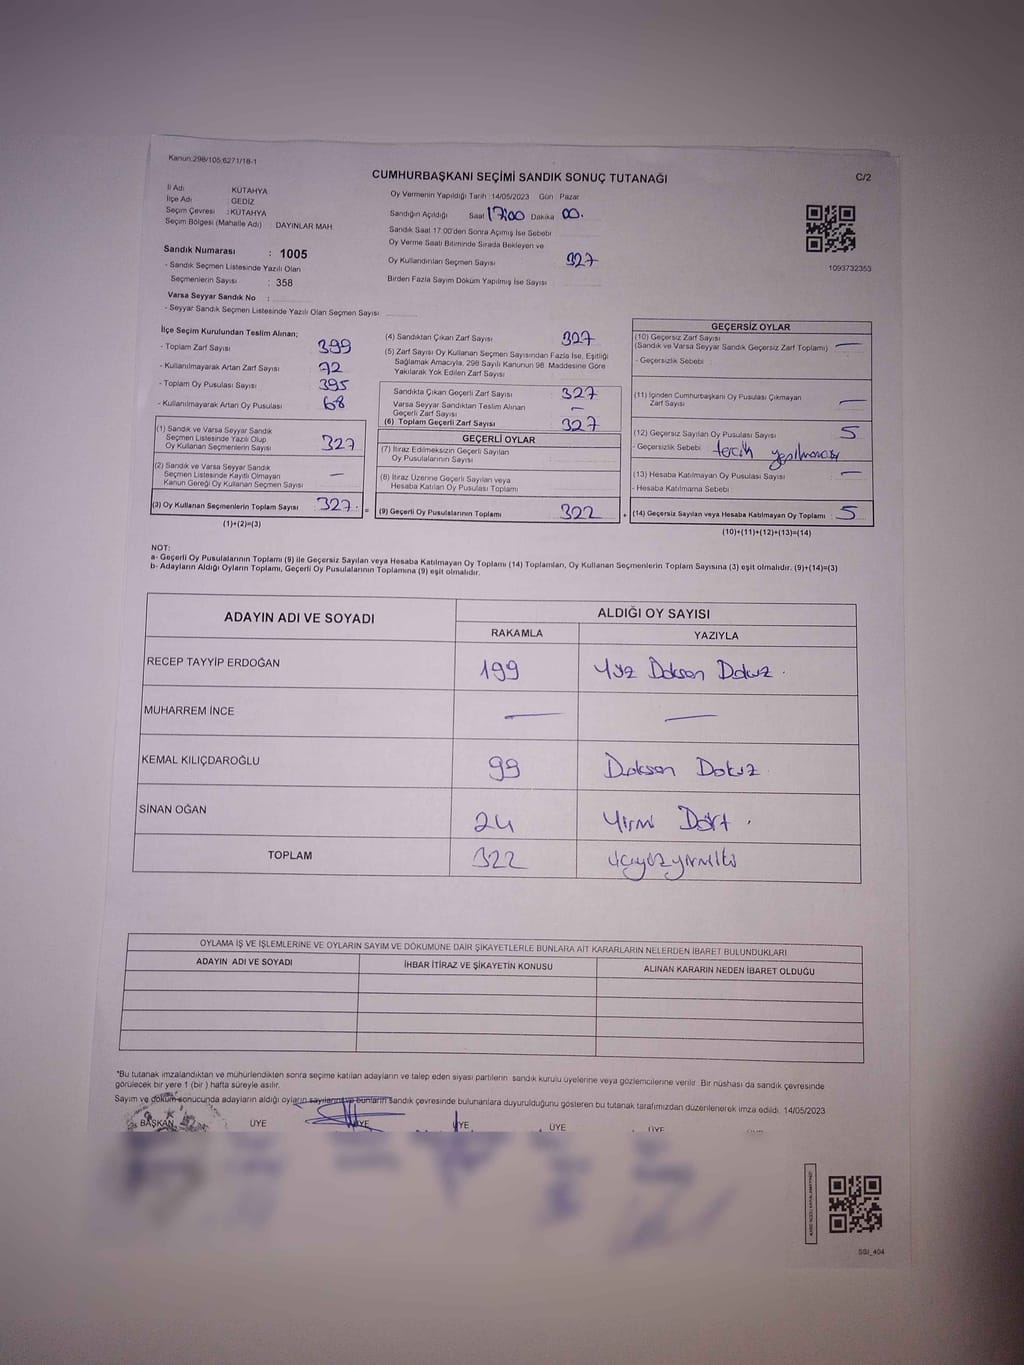 Kanun:298/105;6271/18-1
CUMHURBAŞKANI SEÇİMİ SANDIK SONUÇ TUTANAĞI
C/2
İl Adı : KÜTAHYA
İlçe Adı : GEDİZ
Seçim Çevresi : KÜTAHYA
Seçim Bölgesi (Mahalle Adı) DAYINLAR MAH.
Oy Vermenin Yapıldığı Tarih :14/05/2023 Gün : Pazar
Sandığın Açıldığı Saat 17:00 Dakika 00.
Sandık Saat 17:00'den Sonra Açımış İse Sebebi
Oy Verme Saati Bitiminde Sırada Bekleyen ve
Oy Kullandırılan Seçmen Sayısı 327
Birden Fazla Sayım Döküm Yapılmış İse Sayısı
1093732353
Sandık Numarası : 1005
- Sandık Seçmen Listesinde Yazılı Olan
Seçmenlerin Sayısı : 358
Varsa Seyyar Sandık No :
- Seyyar Sandık Seçmen Listesinde Yazılı Olan Seçmen Sayısı:
İlçe Seçim Kurulundan Teslim Alınan;
- Toplam Zarf Sayısı 399
- Kullanılmayarak Artan Zarf Sayısı 72
- Toplam Oy Pusulası Sayısı 395
- Kullanılmayarak Artan Oy Pusulası 68
(1) Sandık ve Varsa Seyyar Sandık
Seçmen Listesinde Yazılı Olup
Oy Kullanan Seçmenlerin Sayısı 327
(2) Sandık ve Varsa Seyyar Sandık
Seçmen Listesinde Kayıtlı Olmayan
Kanun Gereği Oy Kullanan Seçmen Sayısı —
(3) Oy Kullanan Seçmenlerin Toplam Sayısı 327.
(1)+(2)=(3)
(4) Sandıktan Çıkan Zarf Sayısı 327
(5) Zarf Sayısı Oy Kullanan Seçmen Sayısından Fazla İse, Eşitliği
Sağlamak Amacıyla, 298 Sayılı Kanunun 98. Maddesine Göre
Yakılarak Yok Edilen Zarf Sayısı
Sandıkta Çıkan Geçerli Zarf Sayısı 327
Varsa Seyyar Sandıktan Teslim Alınan
Geçerli Zarf Sayısı —
(6) Toplam Geçerli Zarf Sayısı 327
GEÇERLİ OYLAR
(7) İtiraz Edilmeksizin Geçerli Sayılan
Oy Pusulalarının Sayısı
(8) İtiraz Üzerine Geçerli Sayılan veya
Hesaba Katılan Oy Pusulası Toplamı
= (9) Geçerli Oy Pusulalarının Toplamı 322
GEÇERSİZ OYLAR
(10) Geçersiz Zarf Sayısı
(Sandık ve Varsa Seyyar Sandık Geçersiz Zarf Toplamı) —
- Geçersizlik Sebebi :
(11) İçinden Cumhurbaşkanı Oy Pusulası Çıkmayan
Zarf Sayısı —
(12) Geçersiz Sayılan Oy Pusulası Sayısı 5
- Geçersizlik Sebebi tercih yapılmaması
(13) Hesaba Katılmayan Oy Pusulası Sayısı —
- Hesaba Katılmama Sebebi
+ (14) Geçersiz Sayılan veya Hesaba Katılmayan Oy Toplamı 5
(10)+(11)+(12)+(13)=(14)
NOT:
a- Geçerli Oy Pusulalarının Toplamı (9) ile Geçersiz Sayılan veya Hesaba Katılmayan Oy Toplamı (14) Toplamları, Oy Kullanan Seçmenlerin Toplam Sayısına (3) eşit olmalıdır. (9)+(14)=(3)
b- Adayların Aldığı Oyların Toplamı, Geçerli Oy Pusulalarının Toplamına (9) eşit olmalıdır.
ADAYIN ADI VE SOYADI
ALDIĞI OY SAYISI
RAKAMLA YAZIYLA
RECEP TAYYİP ERDOĞAN 199 Yüz Doksan Dokuz.
MUHARREM İNCE — —
KEMAL KILIÇDAROĞLU 99 Doksan Dokuz
SİNAN OĞAN 24 Yirmi Dört.
TOPLAM 322 üçyüzyirmiiki
OYLAMA İŞ VE İŞLEMLERİNE VE OYLARIN SAYIM VE DÖKÜMÜNE DAİR ŞİKAYETLERLE BUNLARA AİT KARARLARIN NELERDEN İBARET BULUNDUKLARI
ADAYIN ADI VE SOYADI İHBAR İTİRAZ VE ŞİKAYETİN KONUSU ALINAN KARARIN NEDEN İBARET OLDUĞU
*Bu tutanak imzalandıktan ve mühürlendikten sonra seçime katılan adayların ve talep eden siyasi partilerin sandık kurulu üyelerine veya gözlemcilerine verilir. Bir nüshası da sandık çevresinde
görülecek bir yere 1 (bir) hafta süreyle asılır.
Sayım ve döküm sonucunda adayların aldığı oyların sayılarının ve bunların sandık çevresinde bulunanlara duyurulduğunu gösteren bu tutanak tarafımızdan düzenlenerek imza edildi. 14/05/2023
BAŞKAN ÜYE ÜYE ÜYE ÜYE ÜYE
SGI_404